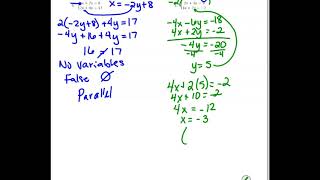 x = -2y+8
2(-2y+8)+4y=17
-4y+16+4y=17
16 = 17
No Variables
False ∅
Parallel
-4x-6y=-18
4x+2y=-2
-4y=-20
-4 -4
y=5
4x+2(5)=-2
4x+10=-2
4x=-12
x=-3
(